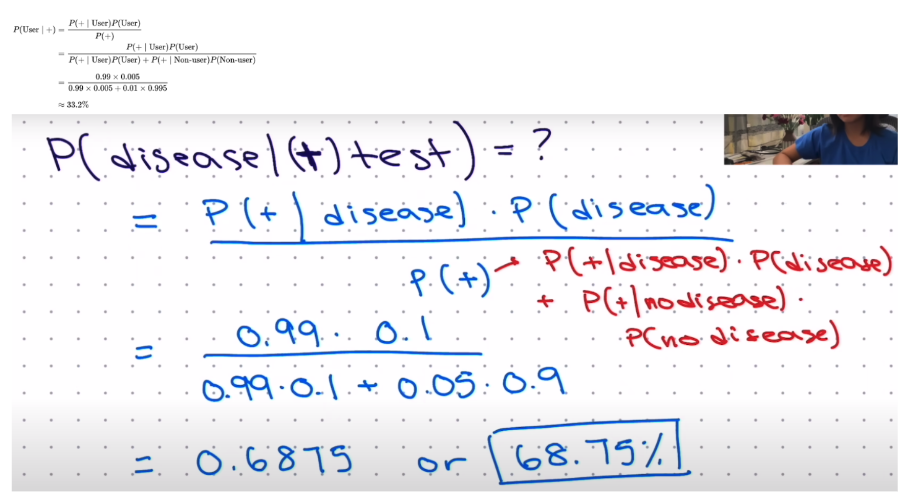 P(User | +) = P(+ | User)P(User) / P(+)
= P(+ | User)P(User) / P(+ | User)P(User) + P(+ | Non-user)P(Non-user)
= 0.99 × 0.005 / 0.99 × 0.005 + 0.01 × 0.995
≈ 33.2%
P(disease|(+) test) = ?
= P(+ | disease) · P(disease)
P(+) → P(+|disease) · P(disease)
+ P(+|no disease) ·
P(no disease)
= 0.99 · 0.1
0.99 · 0.1 + 0.05 · 0.9
= 0.6875 or 68.75%